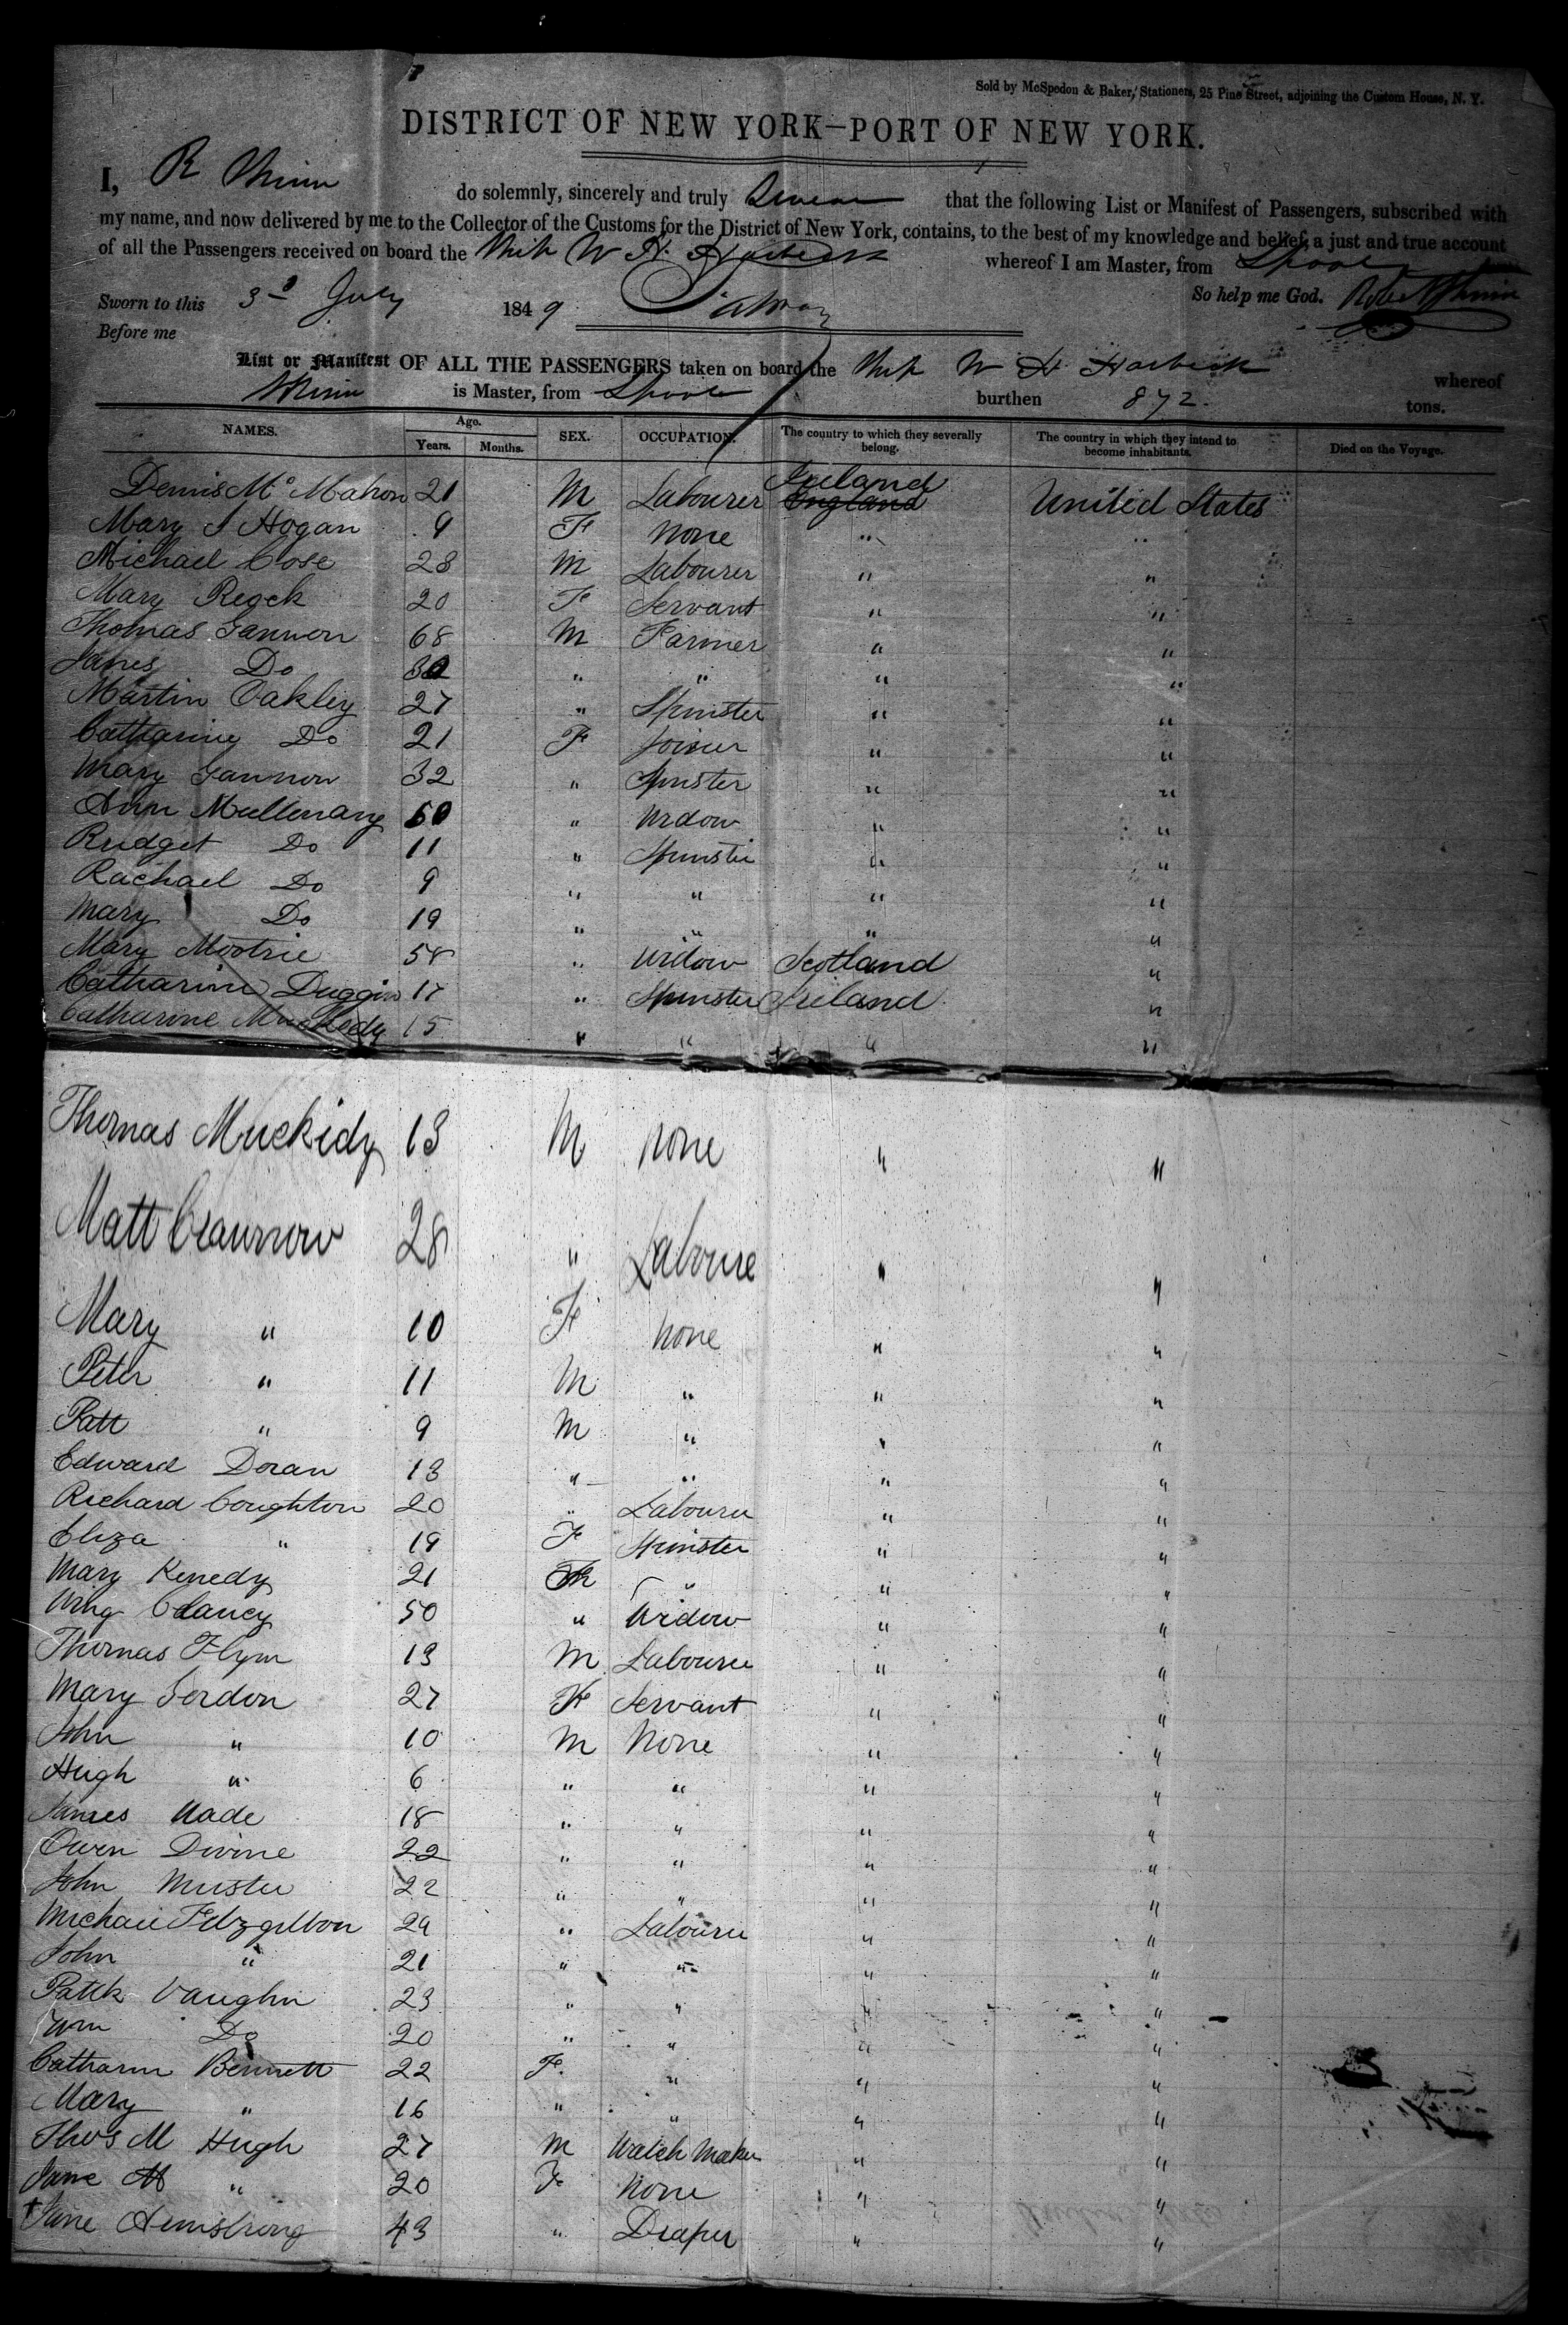 Sold by McSpedon & Baker, Stationers, 25 Pine Street, adjoining the Custom House, N. Y.
DISTRICT OF NEW YORK—PORT OF NEW YORK.
I, R do solemnly, sincerely and truly Swear that the following List or Manifest of Passengers, subscribed with
my name, and now delivered by me to the Collector of the Customs for the District of New York, contains, to the best of my knowledge and belief, a just and true account
of all the Passengers received on board the Ship W H Harbeck whereof I am Master, from Lpool
So help me God.
Sworn to this 3d July 1849
Before me
List or Manifest OF ALL THE PASSENGERS taken on board the Ship W H Harbeck whereof
is Master, from Lpool burthen 872. tons.
NAMES. Age. Years. Months. SEX. OCCUPATION. The country to which they severally belong. The country in which they intend to become inhabitants. Died on the Voyage.
Dennis Mc Mahon 21 M Labourer Ireland England United States
Mary J Hogan 9 F None " "
Michael Cose 28 M Labourer " "
Mary Regek 20 F Servant " "
Thomas Gannon 68 M Farmer " "
James Do " " " "
Martin Oakley 27 " Spinster " "
Catharine Do 21 F Joiner " "
Mary Gannon 32 " Spinster " "
Ann Mullenary 50 " Widow " "
Bridget Do 11 " Spinster " "
Rachael Do 9 " " " "
Mary Do 19 " " " "
Mary Mootrie 58 " Widow Scotland "
Catharine Duggin 17 " Spinster Ireland "
Catharine Muckedy 15 " " " "
Thomas Muckidy 13 M None " "
Matt Crannow 28 " Laboure " "
Mary " 10 F None " "
Peter " 11 M " " "
Patt " 9 M " " "
Edward Doran 13 " " " "
Richard Coughton 20 " Labourer " "
Eliza " 19 F Spinster " "
Mary Kenedy 21 F " " "
Clancy 50 " Widow " "
Thomas Flynn 13 M Labourer " "
Mary Sordon 27 F Servant " "
John " 10 M None " "
Hugh " 6 " " " "
James Wade 18 " " " "
Owen Divine 22 " " " "
John Muster 22 " " " "
Michael Fitzgibbon 24 " Labourer " "
John " 21 " " " "
Patck Vaughn 23 " " " "
Wm Do 20 " " " "
Catharin Bennett 22 F. " " "
Mary " 16 " " " "
Thos M Hugh 27 M Watch Maker " "
Jane M " 20 F None " "
Jane Armstrong 43 " Draper " "